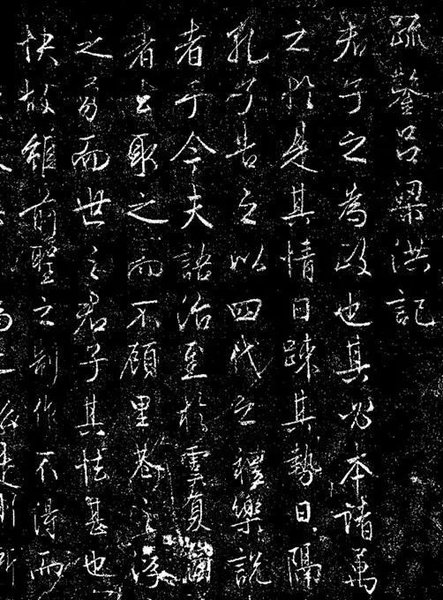 疏鑿呂梁洪記
君子之為政也其必本諸萬
之於是其情日疎其勢日隔
孔子告之以四代之禮樂說
者乎今夫語治至於虞夏
者取之而不顧里巷之浮
之勇而世之君子其怯甚也
快故雖前聖之制作不得而